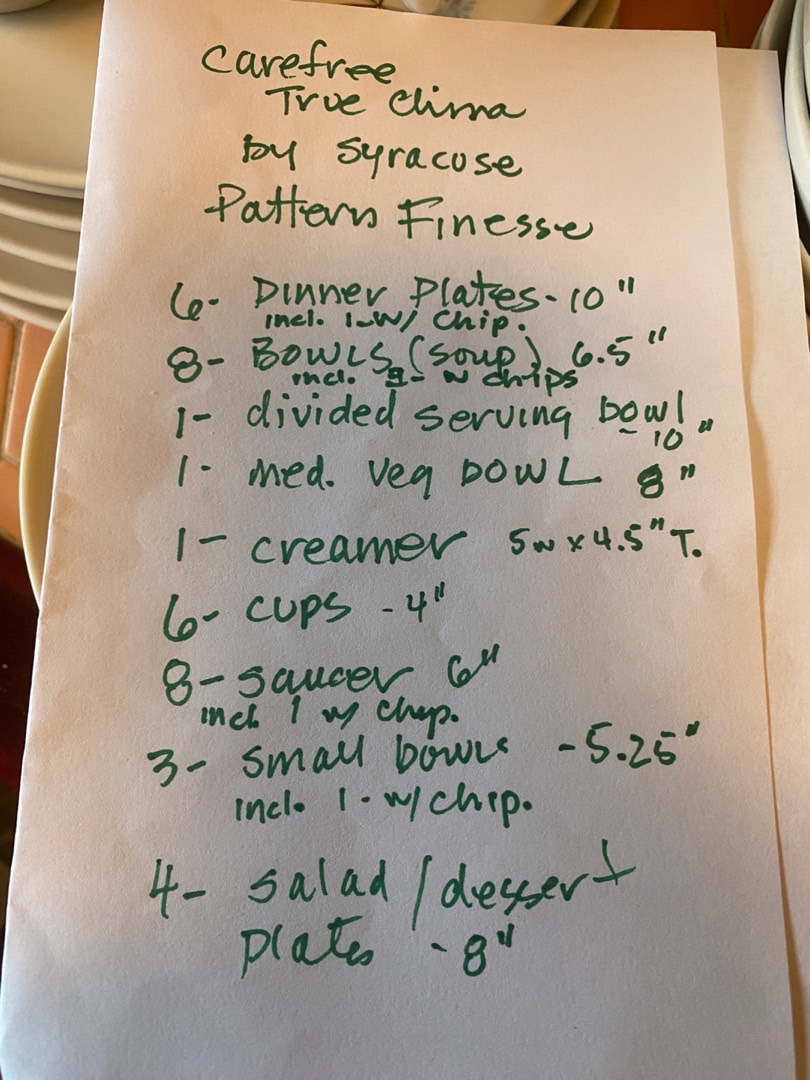 Carefree
True China
by Syracuse
Pattern Finesse
6- Dinner Plates - 10"
incl. 1-w/ chip.
8- Bowls (soup) 6.5"
incl. - w chips
1- divided serving bowl
- 10"
1- med. veg bowl 8"
1- creamer 5w x 4.5" T.
6- cups - 4"
8- saucer 6"
incl 1 w/ chip.
3- small bowls - 5.25"
incl. 1- w/ chip.
4- salad / dessert
plates - 8"